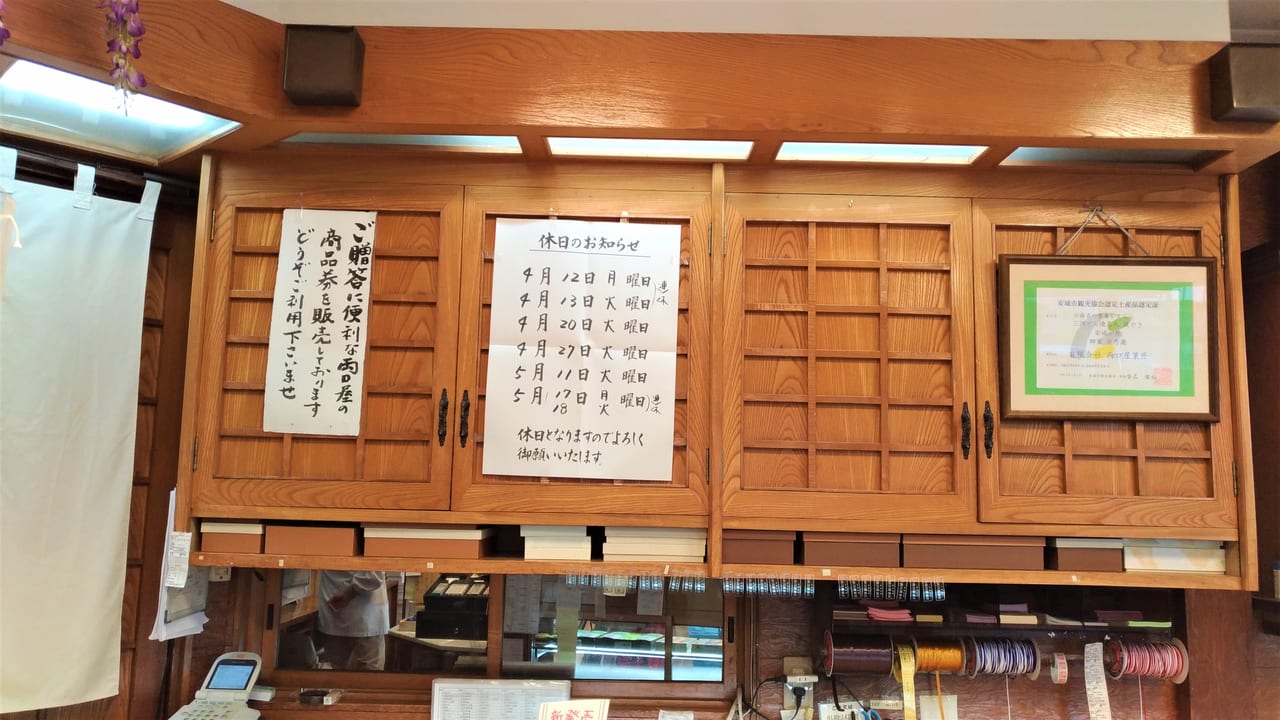 ご贈答に便利な両口屋の
商品券を販売しております
どうぞご利用下さいませ
休日のお知らせ
4月 12日 月曜日
4月 13日 火曜日
連休
4月 20日 火曜日
4月 27日 火曜日
5月 11日 火曜日
5月 17日 月曜日
18 火
連休
休日となりますのでよろしく
御願いいたします。
安城市観光協会認定土産品認定証
有限会社 両口屋菓匠
新発売